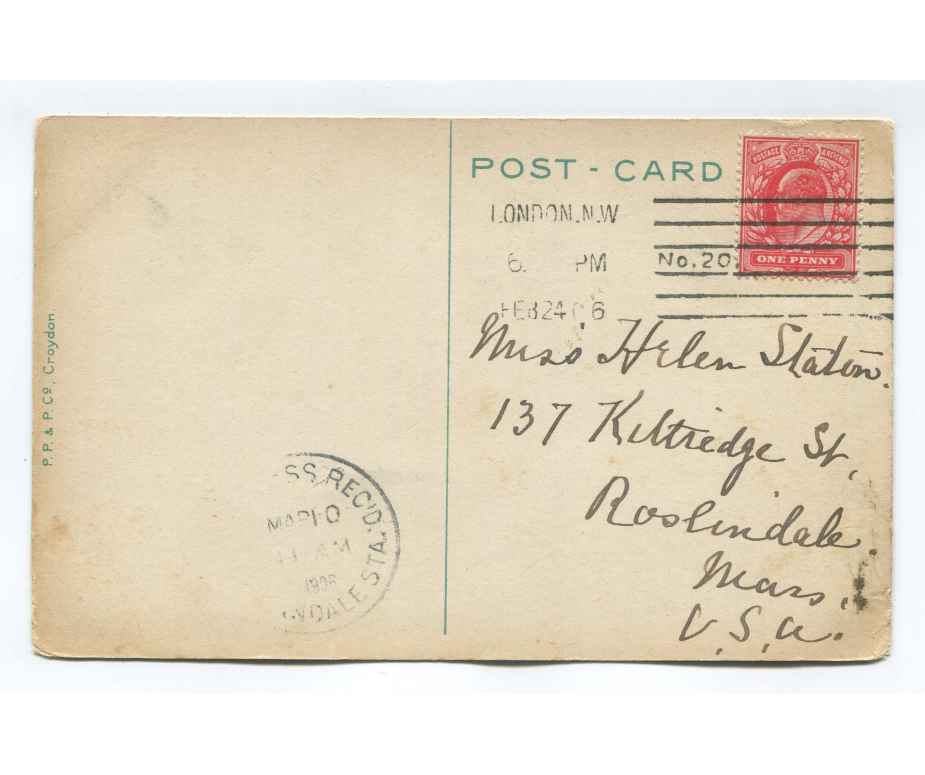 POST - CARD
POSTAGE & REVENUE
ONE PENNY
LONDON. N.W
6. PM
No. 20
FEB 24 06
Miss Helen Staton.
137 Kittredge St,
Roslindale.
Mass,
U.S.A.
P. P. & P. Cº, Croydon.
SS. REC'D.
MAR 10
AM
1906
NDALE STA.